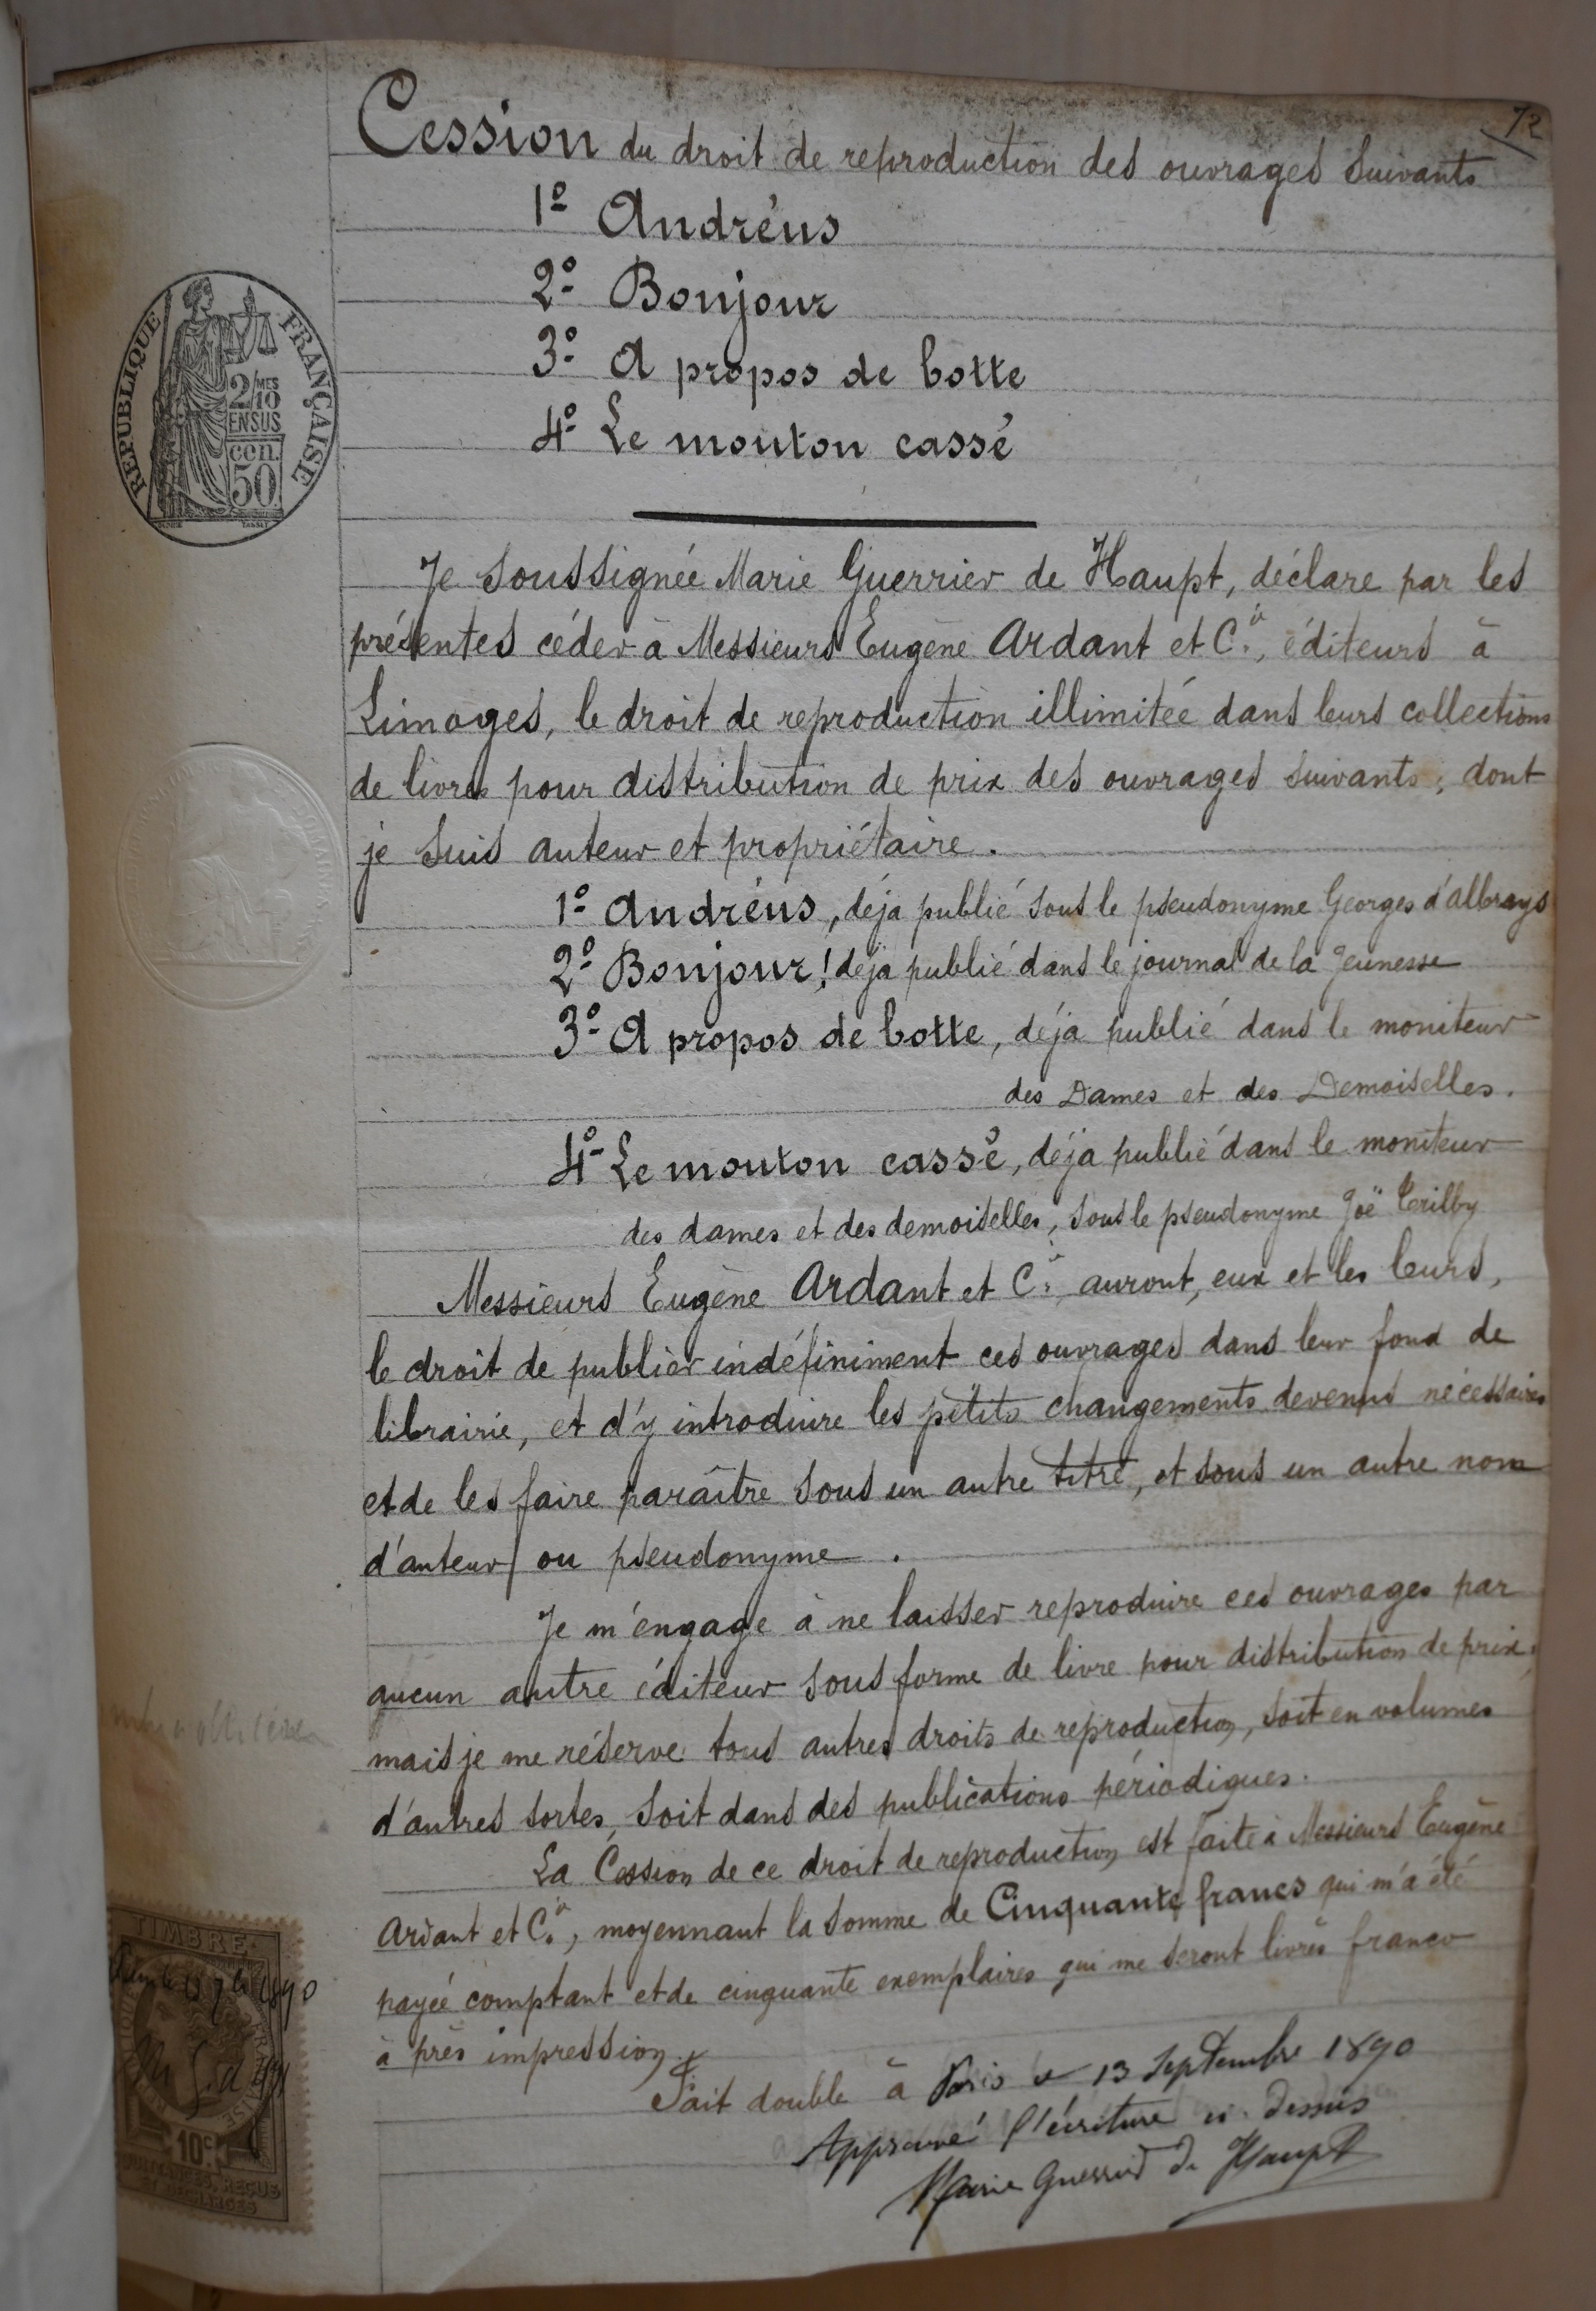 72
Cession du droit de reproduction des ouvrages suivants
1º Andréus
2º Bonjour
3º A propos de botte
4º Le mouton cassé
REPUBLIQUE FRANÇAISE
2/10 MES
EN SUS
50 cen.
Je soussignée Marie Guerrier de Haupt, déclare par les
présentes céder à Messieurs Eugène Ardant et Cie, éditeurs à
Limoges, le droit de reproduction illimitée dans leurs collections
de livres pour distribution de prix des ouvrages suivants, dont
je suis auteur et propriétaire.
1º Andréus, déja publié sous le pseudonyme Georges d'albrays
2º Bonjour! déja publié dans le journal de la Jeunesse
3º A propos de botte, déja publié dans le moniteur
des Dames et des Demoiselles.
4º Le mouton cassé, déja publié dans le moniteur
des dames et des demoiselles, sous le pseudonyme Joë Trilby
Messieurs Eugène Ardant et Cie, auront, eux et les leurs,
le droit de publier indéfiniment ces ouvrages dans leur fond de
librairie, et d'y introduire les petits changements devenus nécessaires
et de les faire paraître sous un autre titre, et sous un autre nom
d'auteur ou pseudonyme.
Je m'engage à ne laisser reproduire ces ouvrages par
aucun autre éditeur sous forme de livre pour distribution de prix,
mais je me réserve tous autres droits de reproduction, soit en volumes
d'autres sortes, soit dans des publications périodiques.
La Cession de ce droit de reproduction est faite à Messieurs Eugène
Ardant et Cie, moyennant la somme de Cinquante francs qui m'a été
payée comptant et de cinquante exemplaires qui me seront livrés franco
à près impression.
Fait double à Paris le 13 Septembre 1890
Approuvé l'écriture ci-dessus
Marie Guerrier de Haupt
TIMBRE
1890
10 c.
QUITTANCES, REÇUS
ET DECHARGES